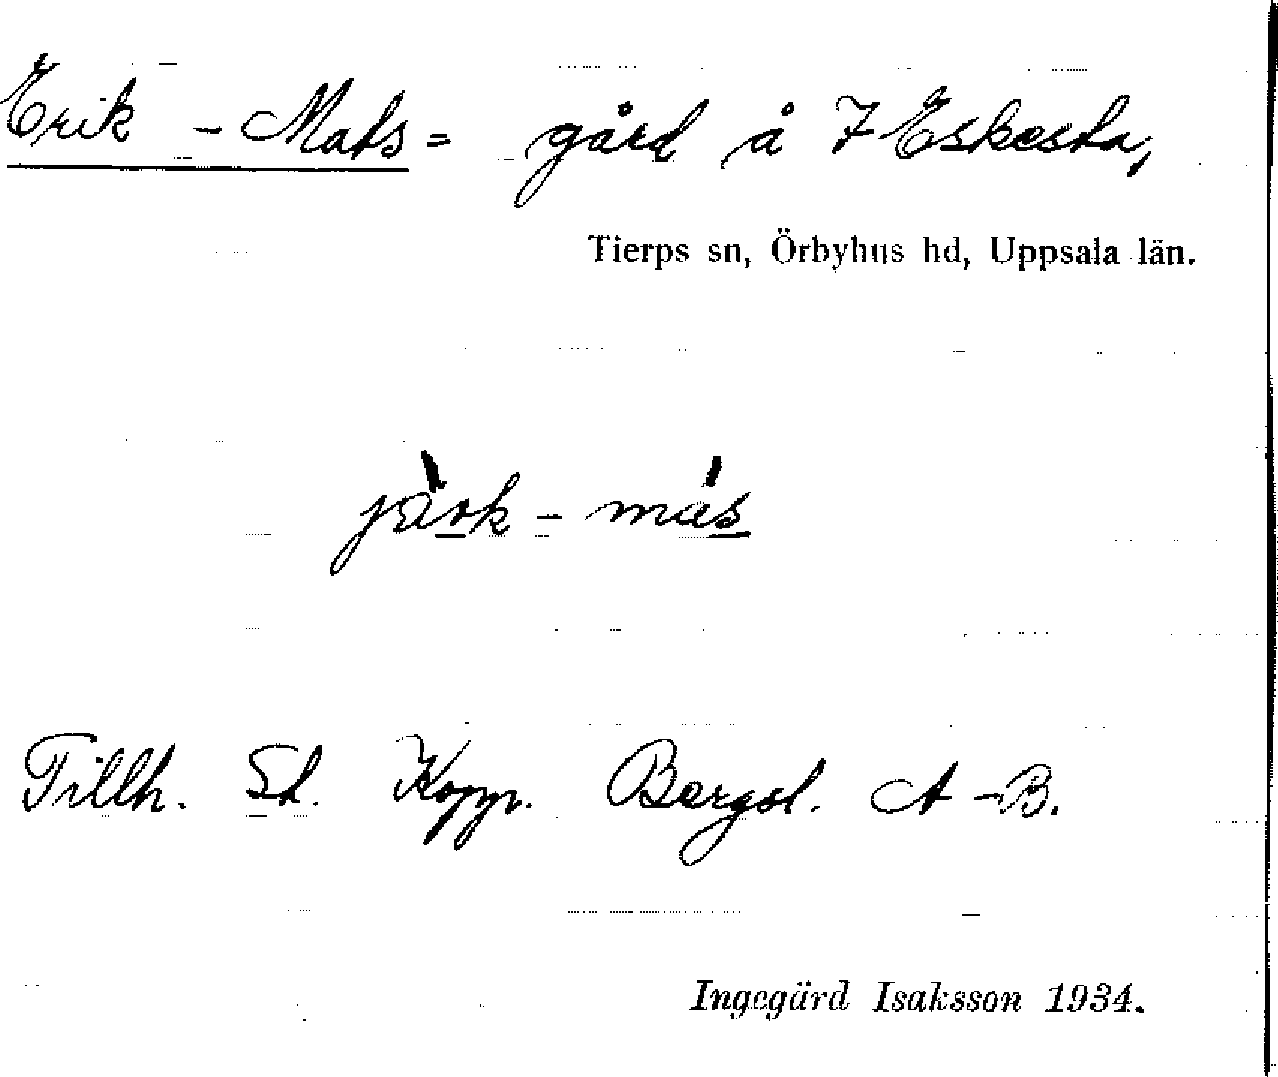 Erik - Mats = gård å 7 Eskesta,
Tierps sn, Örbyhus hd, Uppsala län.
jä̀rk - más
Tillh. St. Kopp. Bergsl. A-B.
Ingegärd Isaksson 1934.